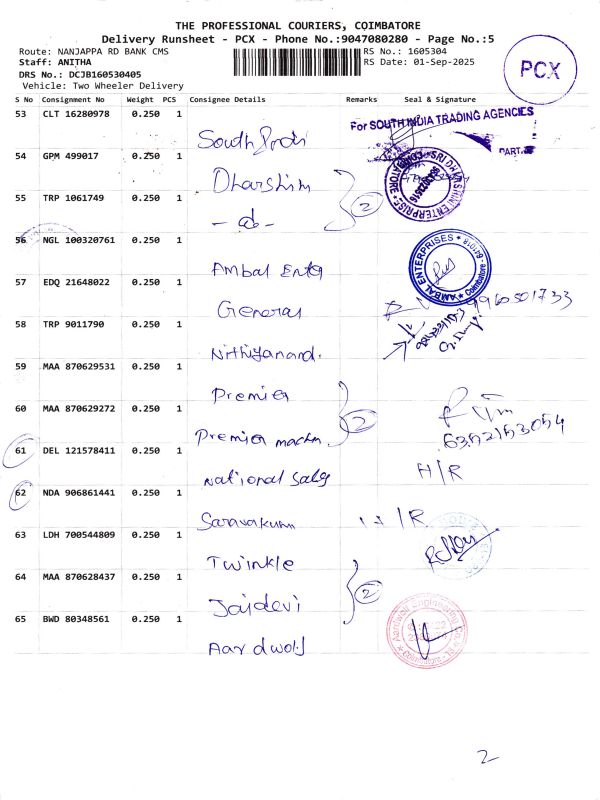 THE PROFESSIONAL COURIERS, COIMBATORE
Delivery Runsheet - PCX - Phone No.:9047080280 - Page No.:5
Route: NANJAPPA RD BANK CMS RS No.: 1605304
Staff: ANITHA RS Date: 01-Sep-2025
DRS No.: DCJB160530405
Vehicle: Two Wheeler Delivery
PCX
S No Consignment No Weight PCS Consignee Details Remarks Seal & Signature
53 CLT 16280978 0.250 1
For SOUTH INDIA TRADING AGENCIES
South India
54 GPM 499017 0.250 1
Dharshini
2
55 TRP 1061749 0.250 1
- do -
56 NGL 100320761 0.250 1
AMBAL ENTERPRISES * Coimbatore - 641018 *
Ambal Enter
57 EDQ 21648022 0.250 1
General
58 TRP 9011790 0.250 1
Nithiyanand.
59 MAA 870629531 0.250 1
Premier
60 MAA 870629272 0.250 1
2
6352153054
Premier machin
61 DEL 121578411 0.250 1
H/R
National Sales
62 NDA 906861441 0.250 1
Saravakum
63 LDH 700544809 0.250 1
Twinkle
64 MAA 870628437 0.250 1
2
Jaidevi
65 BWD 80348561 0.250 1
Aardwolf
2